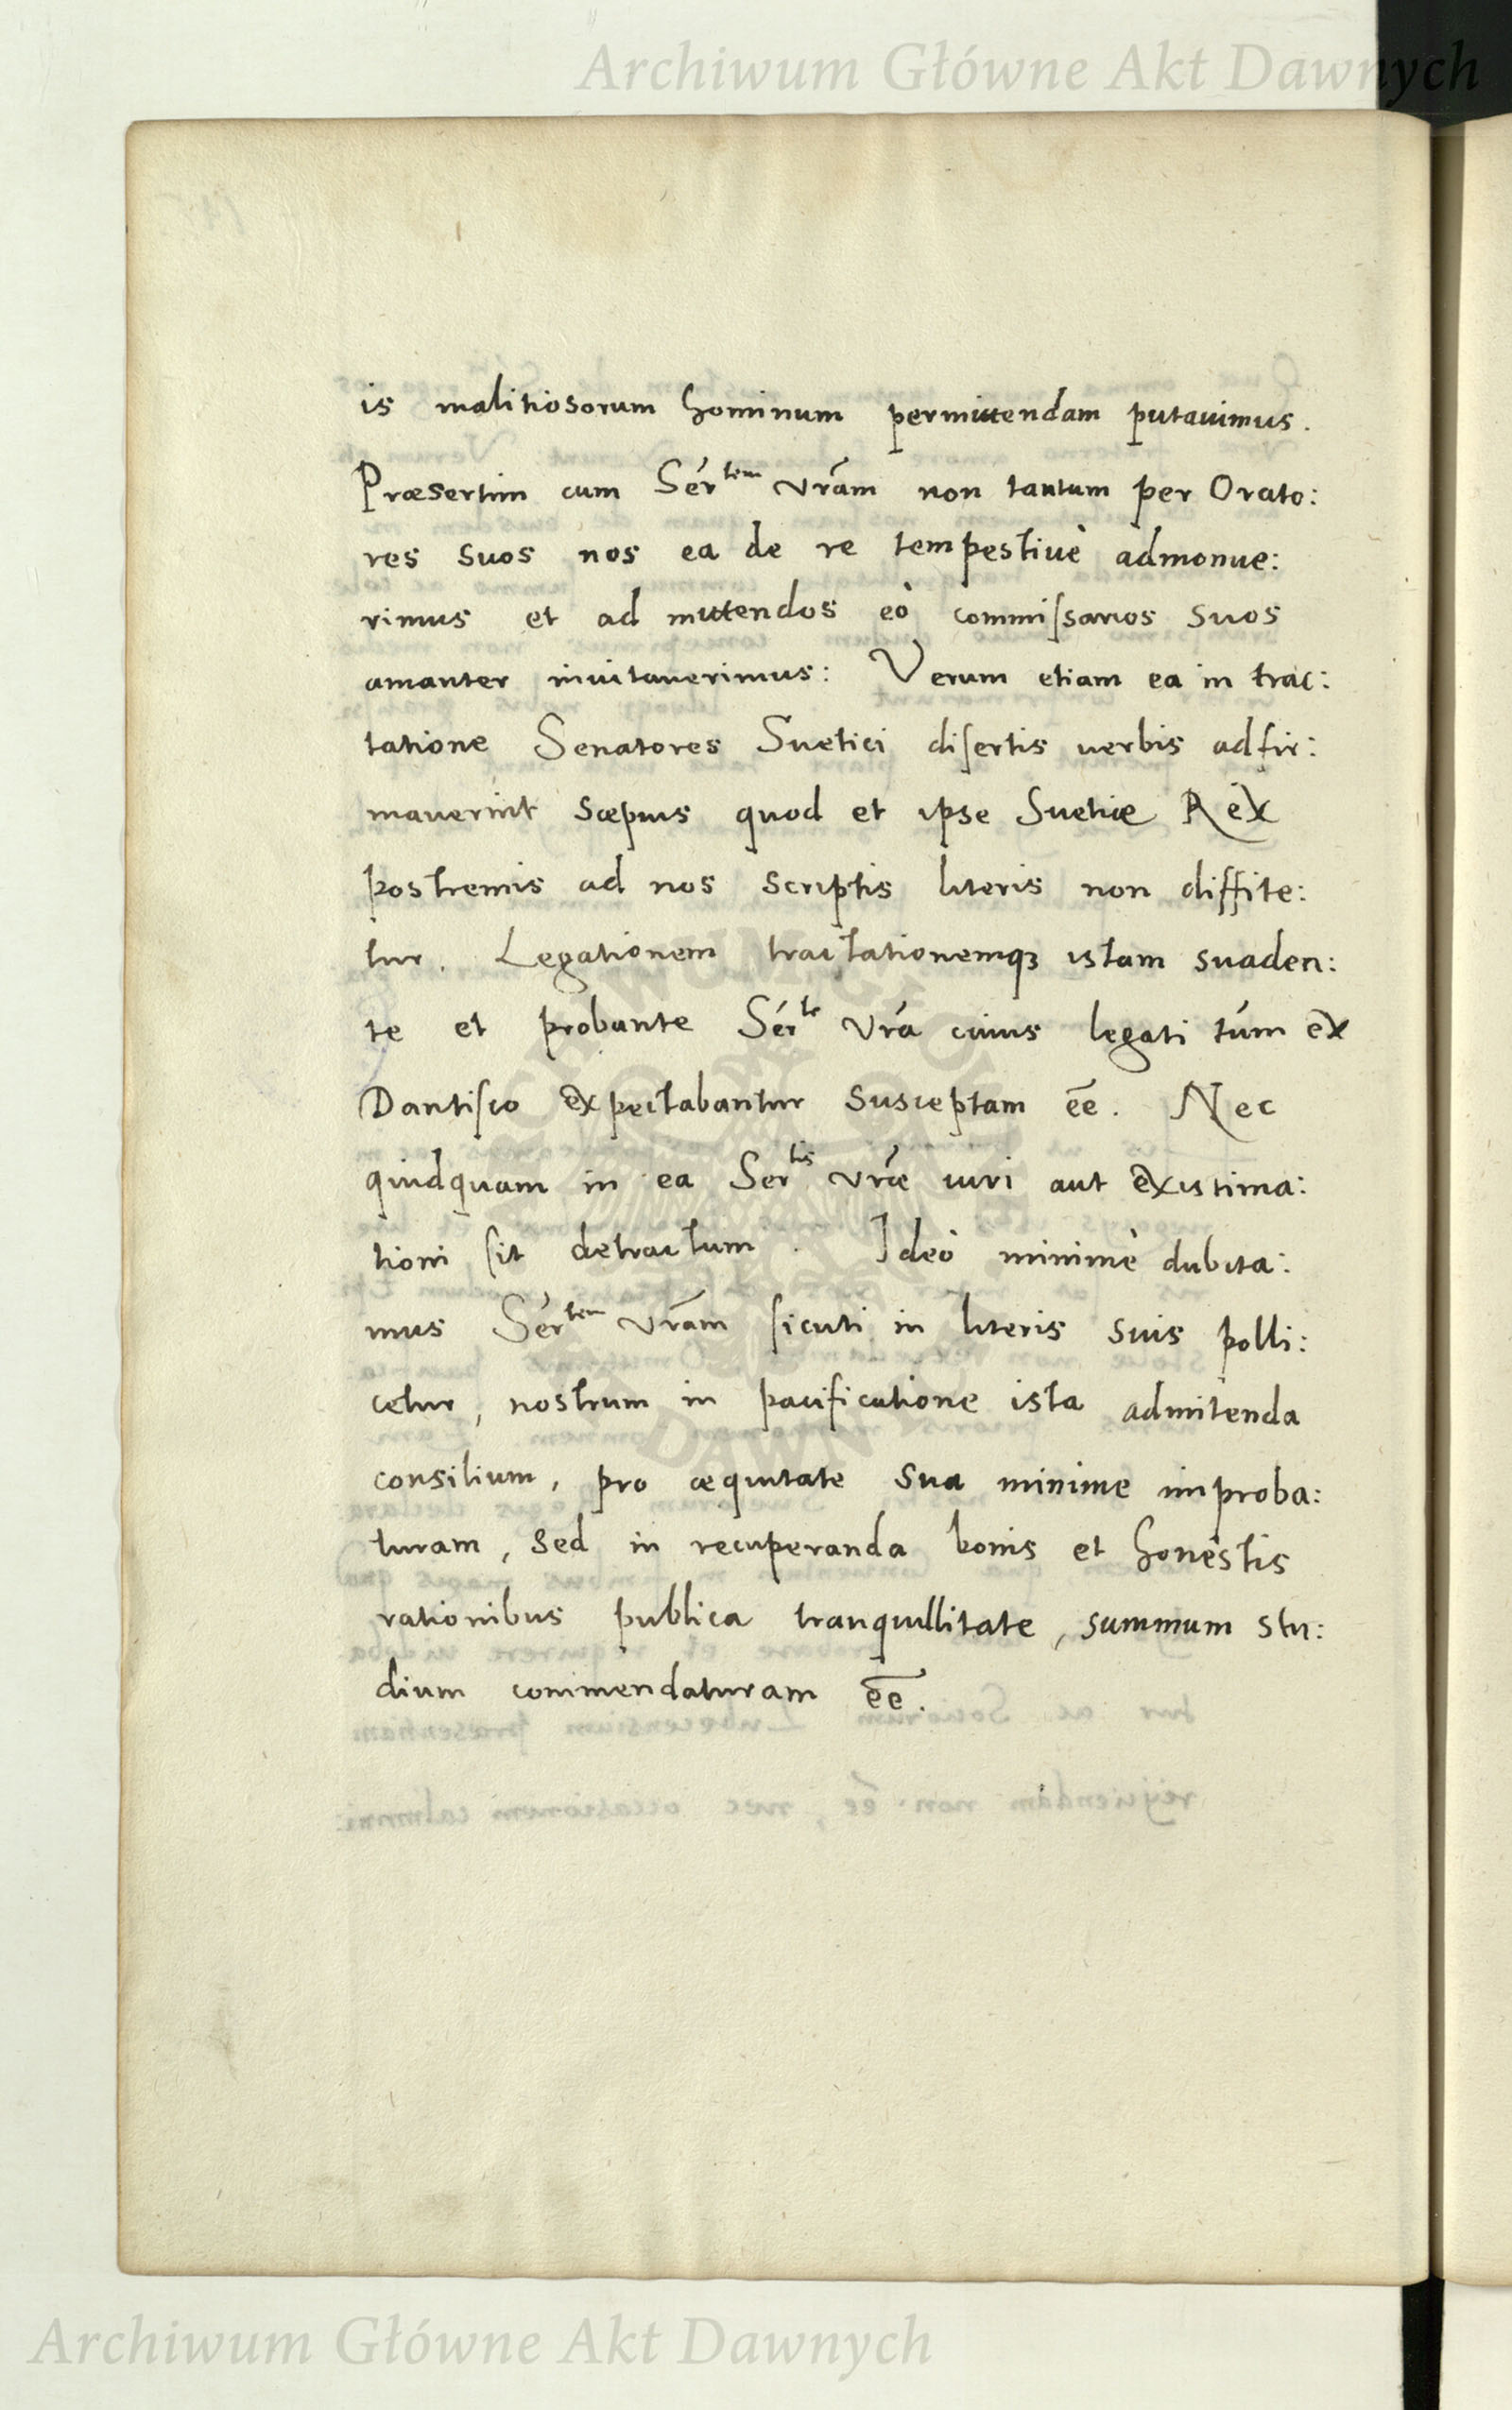 Archiwum Główne Akt Dawnych
is malitiosorum hominum permittendam putauimus.
Præsertim cum Sér^tem vrãm non tantum per Orato:
res suos nos ea de re tempestiuè admonue:
rimus et ad mittendos eò commiſsarios suos
amanter inuitauerimus: Verum etiam ea in trac:
tatione Senatores Suetici diſertis uerbis adfir:
mauerint sæpius quod et ipse Suetiæ Rex
postremis ad nos scriptis literis non diffite:
tur. Legationem tractationemqꝫ istam suaden:
te et probante Sér^te vrá cuius legati túm ex
Dantiſco expectabantur susceptam eē. Nec
quidquam in ea Ser^tis vræ iuri aut existima:
tioni ſit detractum. Ideò minimè dubita:
mus Sér^tem vrãm ſicuti in literis suis polli:
cetur, nostrum in pacificatione ista admitenda
consilium, pro æquitate sua minime improba:
turam, sed in recuperanda bonis et honestis
rationibus publica tranquillitate, summum stu:
dium commendaturam eē.
Archiwum Główne Akt Dawnych